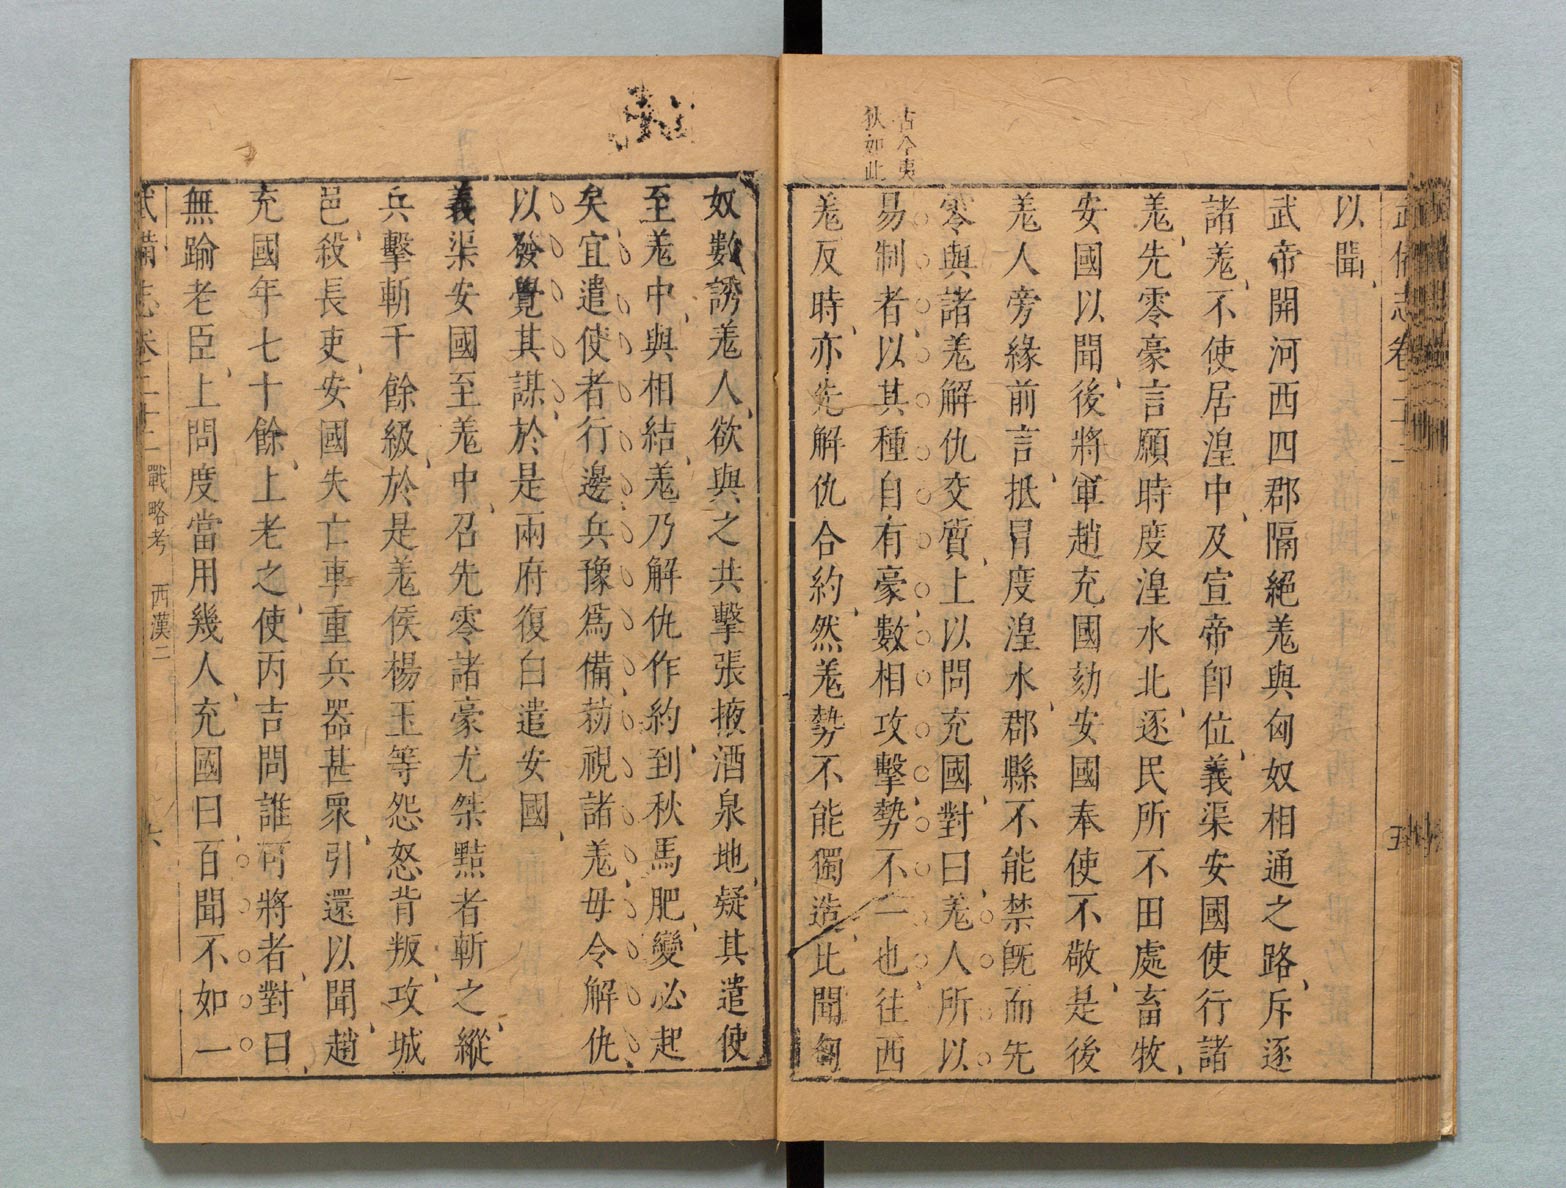 武備志卷二十二
五
以聞
武帝開河西四郡隔絕羗與匈奴相通之路斥逐
諸羗不使居湟中及宣帝卽位義渠安國使行諸
羗先零豪言願時度湟水北逐民所不田處畜牧
安國以聞後將軍趙充國劾安國奉使不敬是後
羗人旁緣前言抵冒度湟水郡縣不能禁旣而先
零與諸羗解仇交質上以問充國對曰羗人所以
易制者以其種自有豪數相攻擊勢不一也徃西
羗反時亦先解仇合約然羗勢不能獨造比聞匈
古今夷
狄如此
奴數誘羗人欲與之共擊張掖酒泉地疑其遣使
至羗中與相結羗乃解仇作約到秋馬肥變必起
矣宜遣使者行邊兵豫爲備勑視諸羗毋令解仇
以發覺其謀於是兩府復白遣安國
義渠安國至羗中召先零諸豪尤桀黠者斬之縱
兵擊斬千餘級於是羗侯楊玉等怨怒背叛攻城
邑殺長吏安國失亡車重兵器甚衆引還以聞趙
充國年七十餘上老之使丙吉問誰可將者對曰
無踰老臣上問度當用幾人充國曰百聞不如一
武備志卷二十二 戰略考 西漢二
六